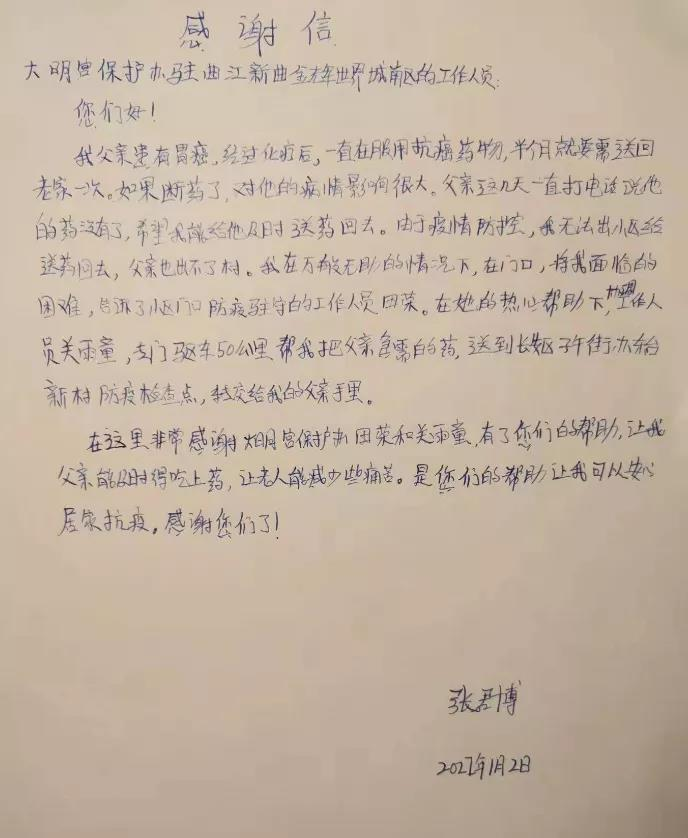 感谢信
大明宫保护办驻曲江新曲金辉世界城南区的工作人员:
您们好!
我父亲患有胃癌,经过化疗后,一直在服用抗癌药物,半个月就要需送回
老家一次。如果断药了,对他的病情影响很大。父亲这几天一直打电话说他
的药没有了,希望我能给他及时送药回去。由于疫情防控,我无法出小区给
送药回去,父亲也出不了村。我在万般无助的情况下,在门口,将我面临的
困难,告诉了小区门口防疫驻守的工作人员田荣。在她的热心帮助下,工作人
员关雨童,专门驱车50公里帮我把父亲急需的药,送到长安区子午街办东台
新村防疫检查点,转交给我的父亲手里。
在这里非常感谢大明宫保护办田荣和关雨童,有了您们的帮助,让我
父亲能及时得吃上药,让老人能减少些痛苦。是您们的帮助让我可以安心
居家抗疫。感谢您们了!
张君博
2022年1月2日